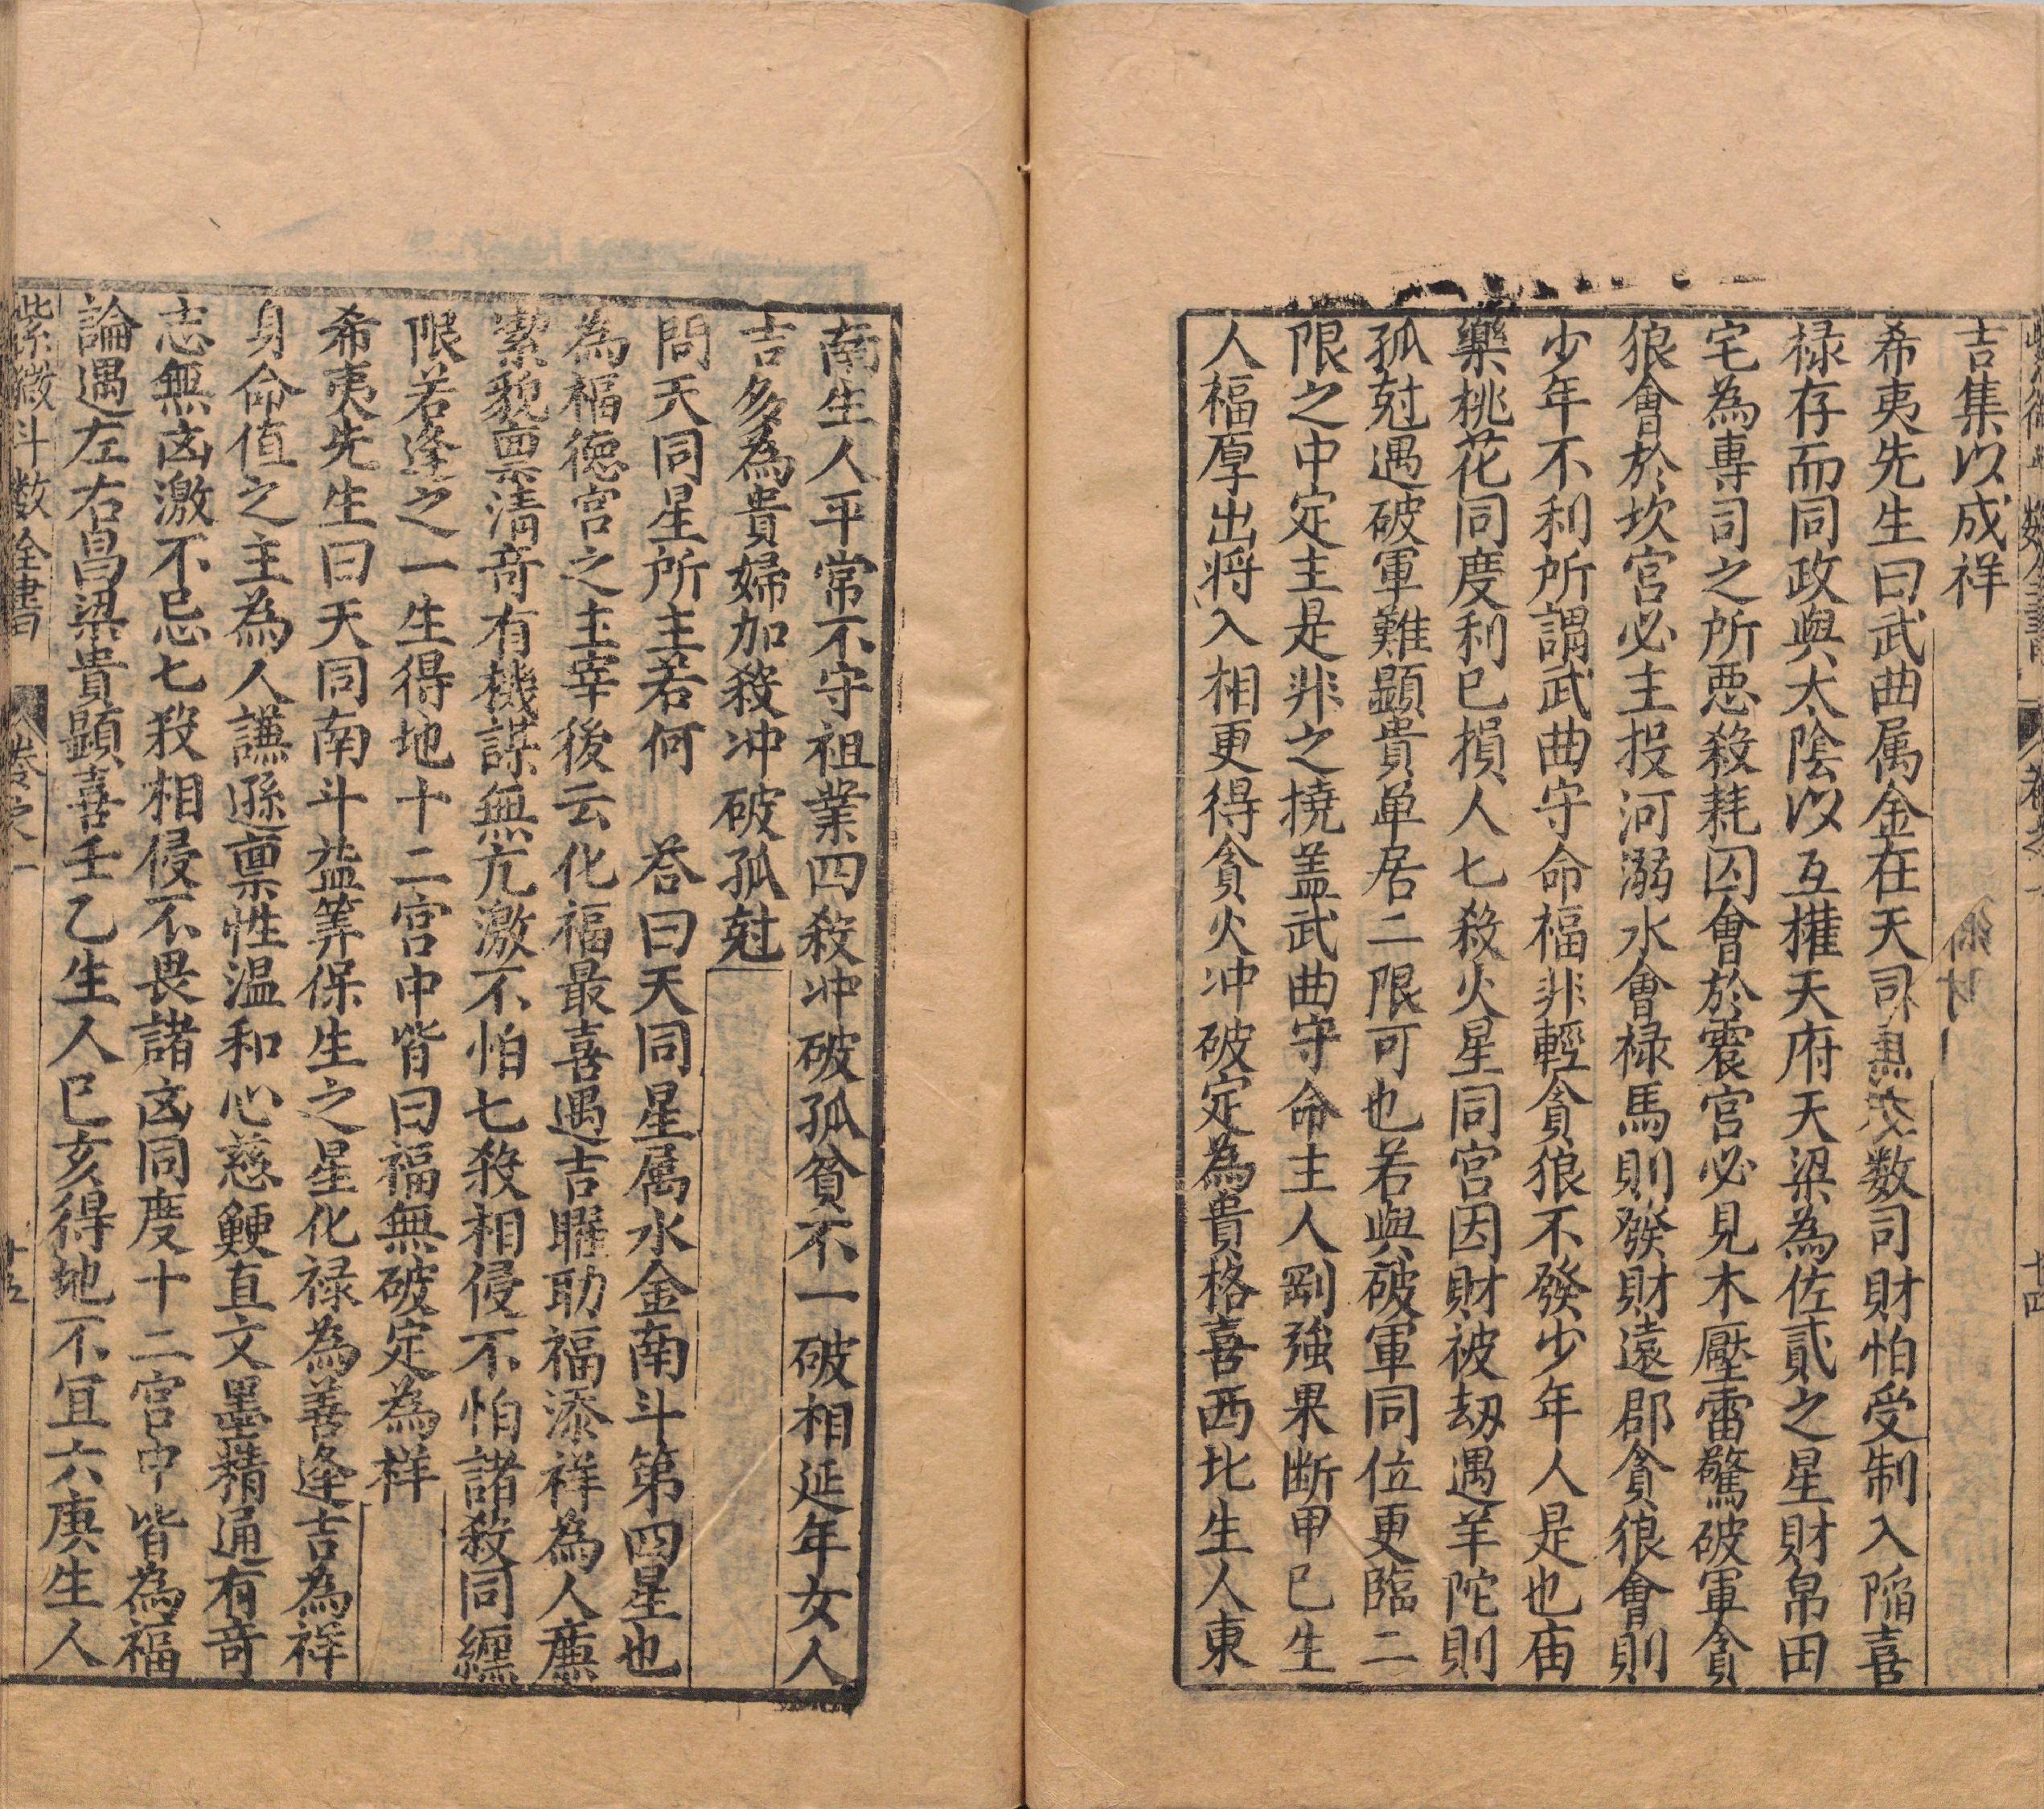 吉集以成祥
希夷先生曰武曲属金在天司壽数司財怕受制入陥喜
禄存而同政與太隂以互權天府天梁為佐貳之星財帛田
宅為專司之所惡殺耗囚會於震宮必見木壓雷驚破軍貪
狼會於坎宮必主投河溺水會禄馬則發財遠郡貪狼會則
少年不利所謂武曲守命福非輕貪狼不發少年人是也庙
樂桃花同度利已損人七殺火星同宮因財被刼遇羊陀則
孤尅遇破軍難顕貴单居二限可也若與破軍同位更臨二
限之中定主是非之撓盖武曲守命主人剛強果断甲巳生
人福厚出将入相更得貪火冲破定為貴格喜西北生人東
南生人平常不守祖業四殺冲破孤貧不一破相延年女人
吉多為貴婦加殺冲破孤尅
問天同星所主若何　荅曰天同星属水金南斗第四星也
為福德宮之主宰後云化福最喜遇吉曜助福添祥為人廉
潔貌禀清竒有機謀無亢激不怕七殺相侵不怕諸殺同纏
限若逢之一生得地十二宮中皆曰福無破定為祥
希夷先生曰天同南斗益筭保生之星化禄為善逢吉為祥
身命值之主為人謙遜禀性温和心慈鯁直文墨精通有竒
志無㐫激不忌七殺相侵不畏諸㐫同度十二宮中皆為福
論遇左右昌梁貴顕喜壬乙生人巳亥得地不宜六庚生人
紫微斗数全書　卷之一　十五